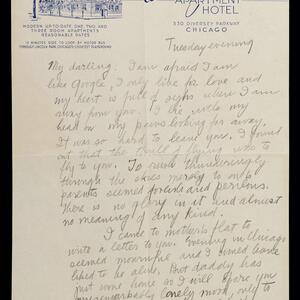 APARTMENT
HOTEL
MODERN UP-TO-DATE ONE, TWO AND
THREE ROOM APARTMENTS
REASONABLE RATES
530 DIVERSEY PARKWAY
CHICAGO
15 MINUTES RIDE TO LOOP BY MOTOR BUS
THROUGH LINCOLN PARK, CHICAGO'S GREATEST PLAYGROUND
Tuesday evening
My darling: I am afraid I am
like Google, I only live for love and
my heart is full of when I am
away from you. I settle my
head on my paws looking far away.
It was so hard to leave you. I found
out that the thrill of flying was to
fly to you. To rush thunderingly
through the skies merely to see
parents seemed foolish and perilous.
There is no glory in it and almost
no meaning of any kind.
I came to mother's flat to
write a letter to you. Evening in Chicago
seemed mournful and I
liked to be alone, But daddy has
just come home so I will spare you
my remarkably lonely mood, only to